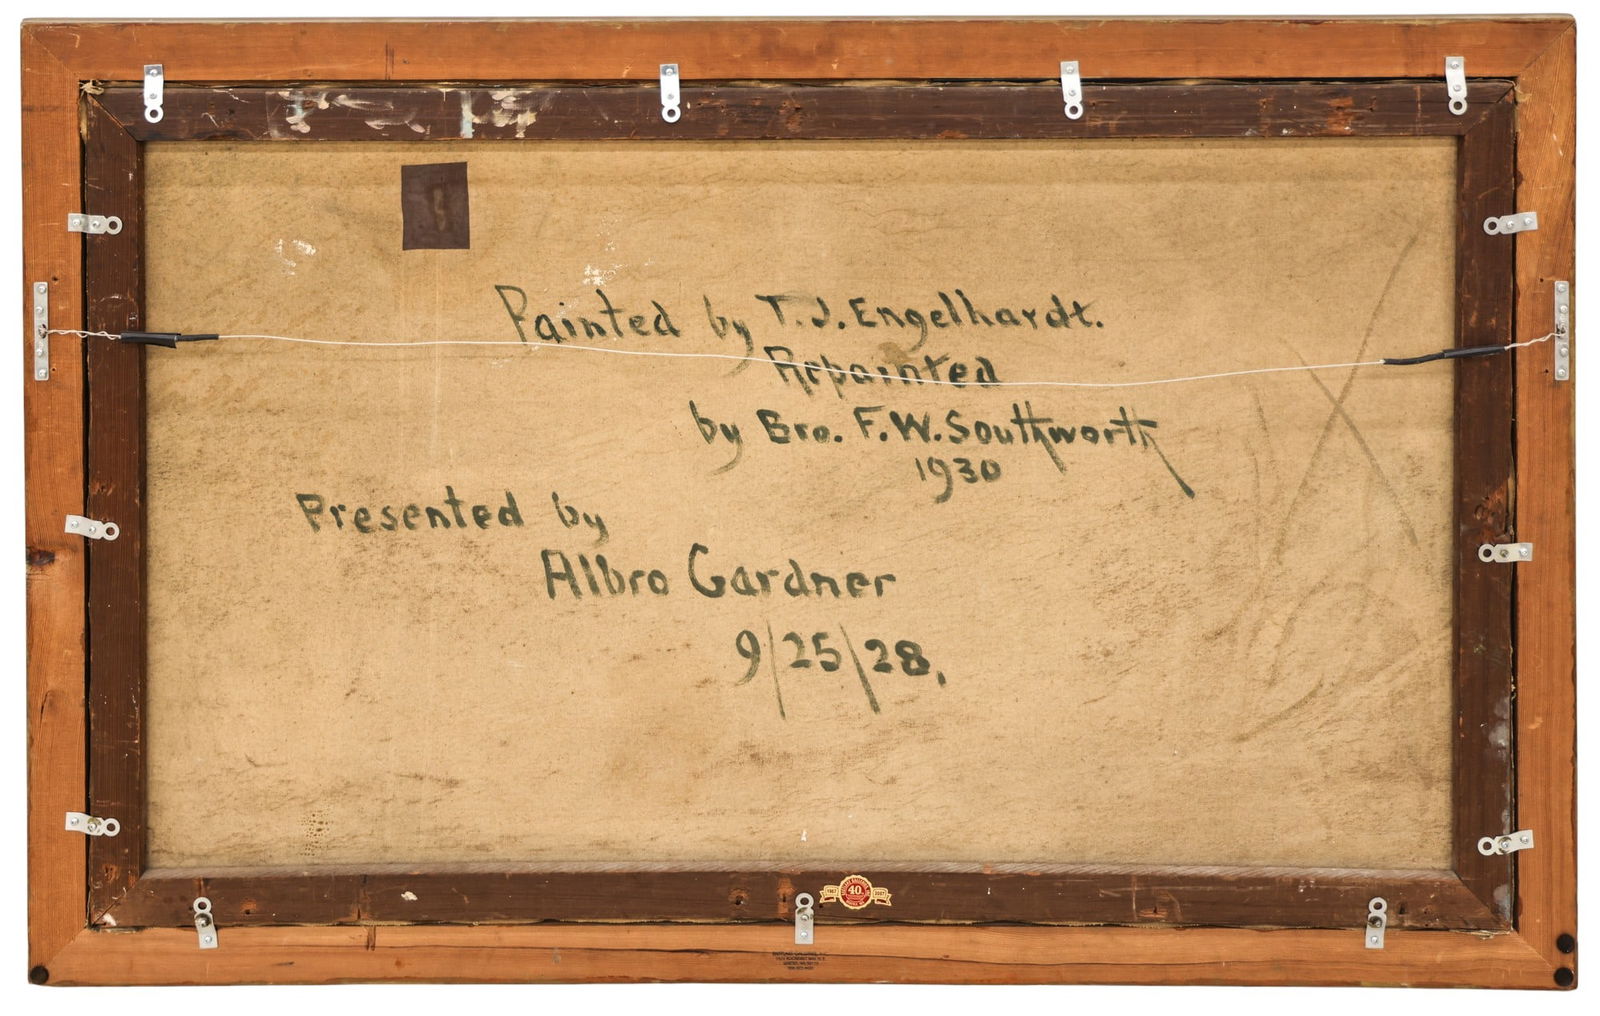 Painted by T.J. Engelhardt.
Repainted
by Bro. F.W. Southworth
1930
Presented by
Albro Gardner
9/25/28.
40